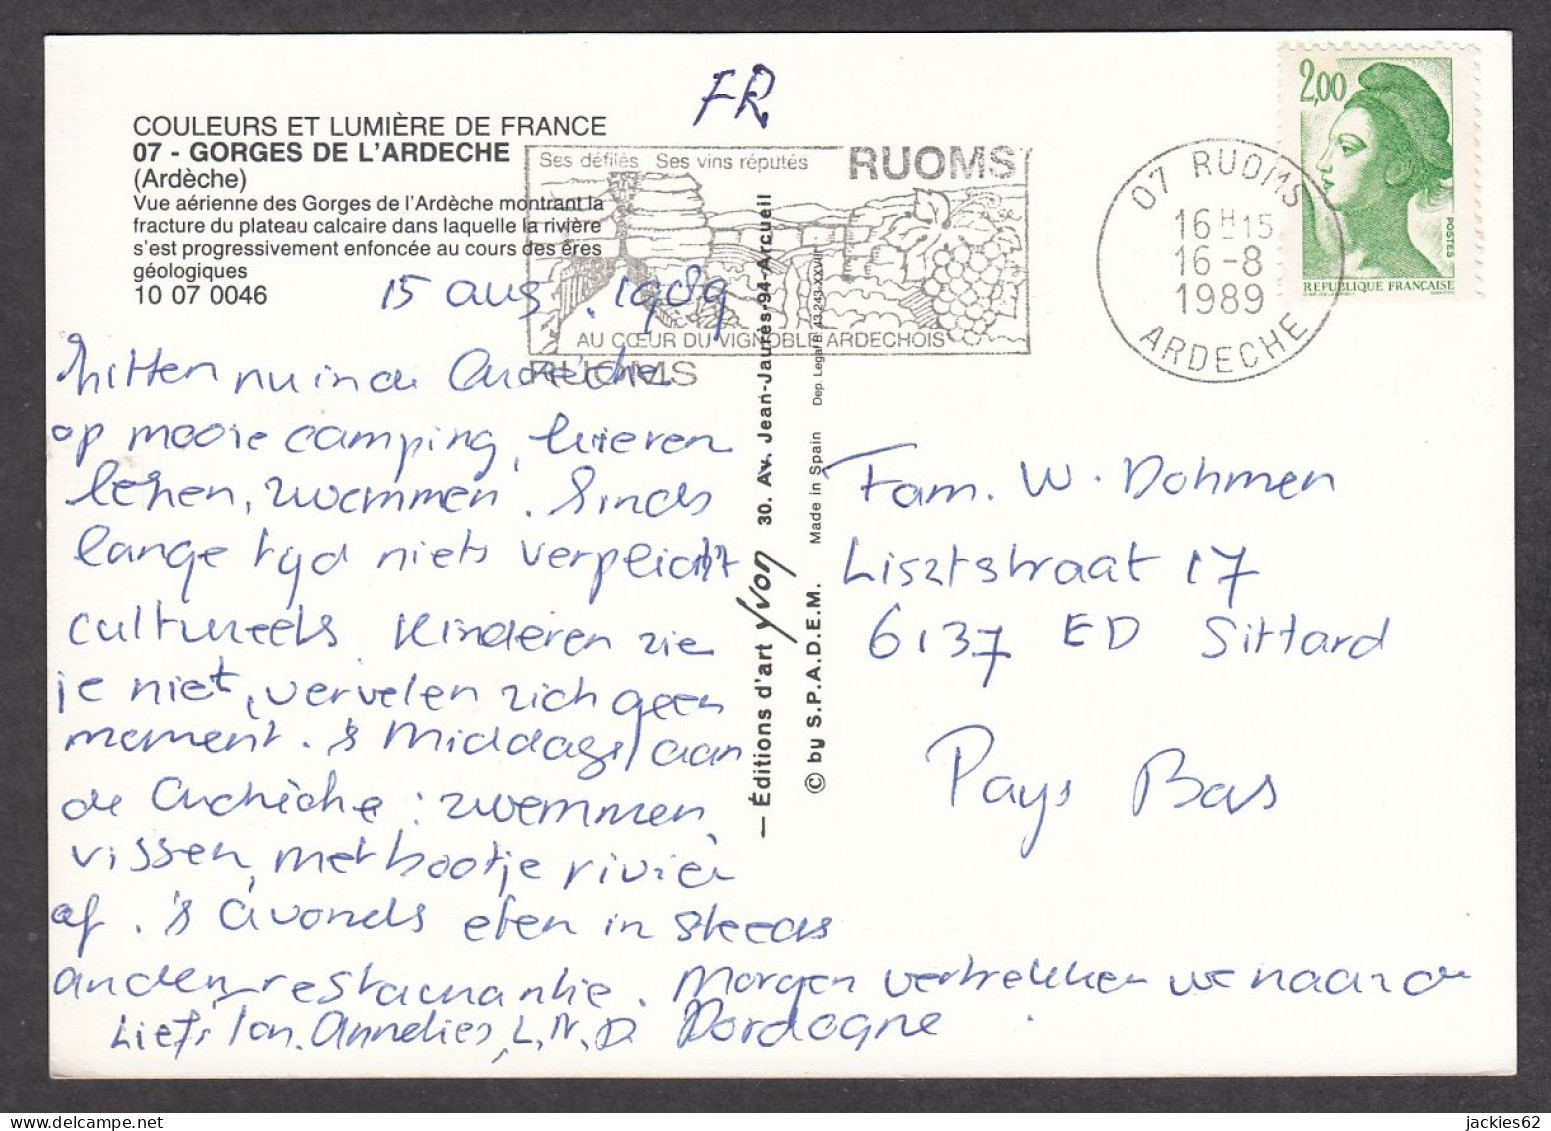 FR
COULEURS ET LUMIÈRE DE FRANCE
07 - GORGES DE L'ARDECHE
(Ardèche)
Vue aérienne des Gorges de l'Ardèche montrant la
fracture du plateau calcaire dans laquelle la rivière
s'est progressivement enfoncée au cours des ères
géologiques
10 07 0046
Ses défilés Ses vins réputés
RUOMS
AU CŒUR DU VIGNOBLE ARDECHOIS
RUOMS
07 RUOMS
16 H 15
16-8
1989
ARDECHE
2,00
POSTES
REPUBLIQUE FRANÇAISE
15 aug. 1989
Zitten nu in de Ardèche
op mooie camping, luieren
lezen, zwemmen. Sinds
lange tijd niets verplicht
cultureels. Kinderen zie
je niet, vervelen zich geen
moment. 's Middags aan
de Ardèche: zwemmen,
vissen, met bootje rivier
af. 's Avonds eten in steeds
ander restaurantje. Morgen vertrekken we naar de
Dordogne
Liefs Ton, Annelies, L, N, D
— Éditions d'art Yvon 30. Av. Jean-Jaurès-94-Arcueil
© by S.P.A.D.E.M. Made in Spain Dep. Legal B. 43.243-XXVIII
Fam. W. Dohmen
Lisztstraat 17
6137 ED Sittard
Pays Bas
jackies62